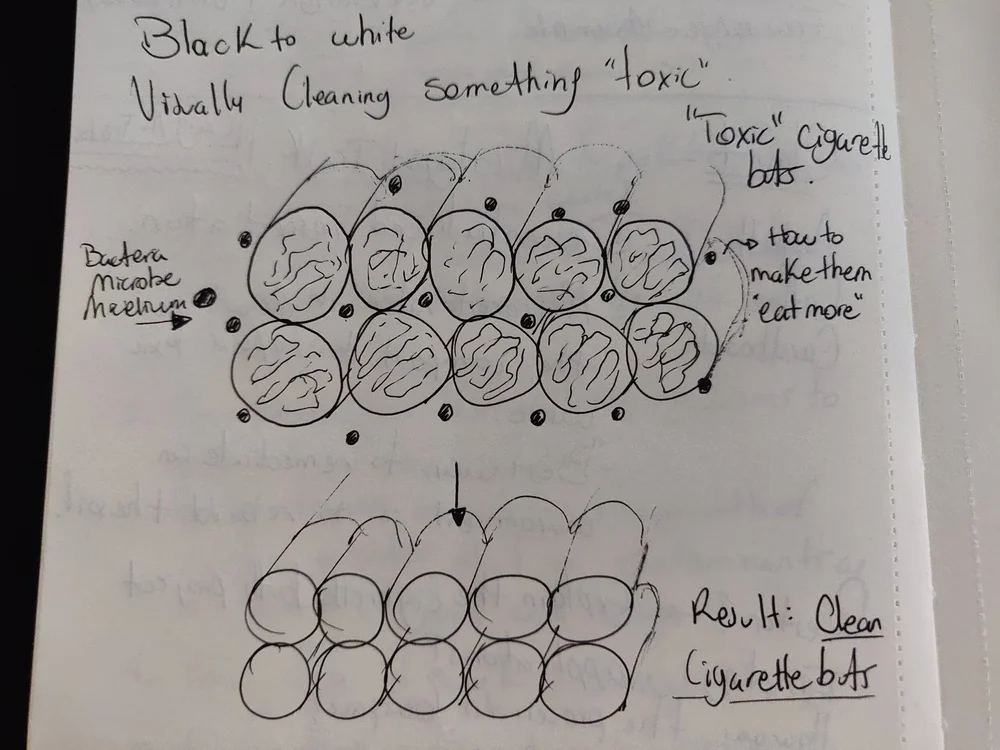 Black to white
Visually Cleaning something "toxic".
"Toxic" cigarette
buts.
Bactera
microbe
→ How to
make them
"eat more"
Result: Clean
Cigarette buts